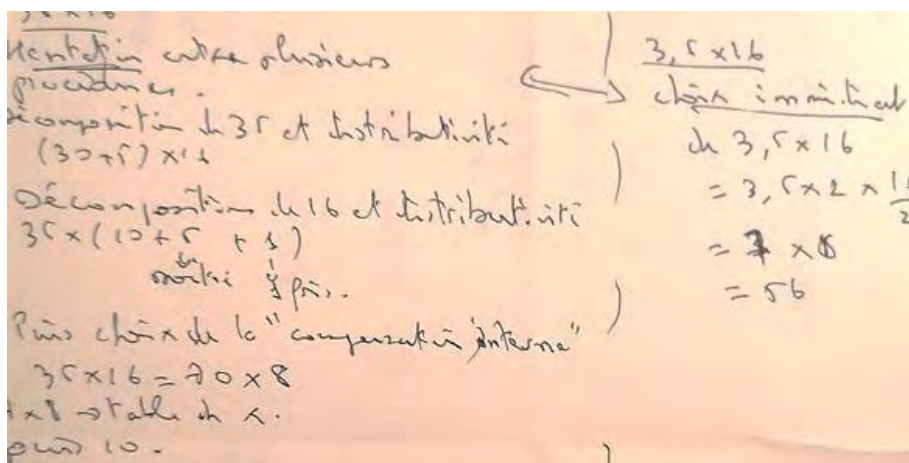 35 x 16
Hésitation entre plusieurs
procédures.
Décomposition de 35 et distributivité
(30+5) x 16
Décomposition de 16 et distributivité
35 x (10 + 5 + 1)
moitié 1 fois.
Puis choix de la "compensation interne"
35 x 16 = 70 x 8
7 x 8 → table de x.
puis 10.
3,5 x 16
choix immédiat
de 3,5 x 16
= 3,5 x 2 x 16/2
= 7 x 8
= 56